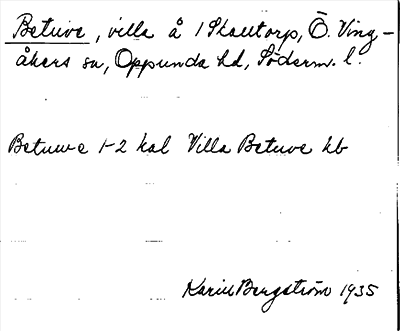 Betuve, villa å 1 Skaltorp, Ö. Ving-
åkers sn, Oppunda hd, Söderm. l.
Betuwe 1-2 kal Villa Betuve kb
Karin Bengström 1935